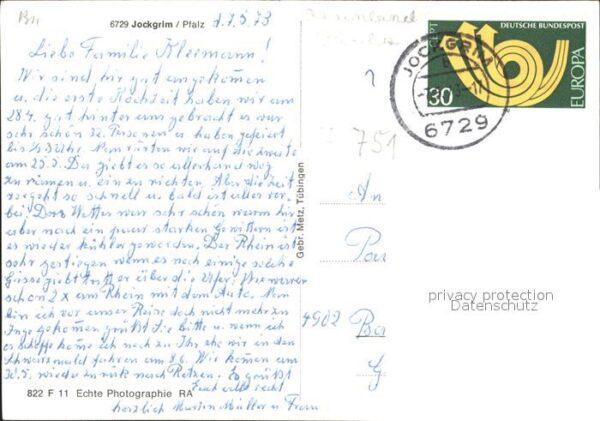 6729 Jockgrim / Pfalz
d. 7.5.73
Liebe Familie Kleemann!
Wir sind hir gut angekommen
u. die erste Hochzeit haben wir am
28.4. gut hinter uns gebracht es war
sehr schön 32 Personen u. haben gefeiert
bis Uhr. Nun rüsten wir auf die zweite
am 25.5. Da giebt es so allerhand weg
zu räumen u. ein zu richten. Aber die Zeit
vergeht so schnell u. bald ist alles vor-
bei. Das Wetter war sehr schön warm hir
aber nach ein paar starken Gewittern ist
es wieder kühler geworden. Der Rhein ist
sehr gestiegen wenn es noch einige solche
Güsse giebt tritt er über die Ufer. Wir waren
schon 2 x am Rhein mit dem Auto. Nun
bin ich vor unser Reise doch nicht mehr zu
Inge gekommen grüßt Sie bitte u. wenn ich
es schaffe komme ich noch zu Ihr ehe wir in den
Schwarzwald fahren am 8.6. Wir kommen am
30.5. wieder zurück nach Es grüßt
Euch alle recht
herzlich Martin Müller u Frau
822 F 11 Echte Photographie RA
Gebr. Metz, Tübingen
DEUTSCHE BUNDESPOST
CEPT
EUROPA
30
JOCKGRIM
6729
751
An
4902
privacy protection
Datenschutz